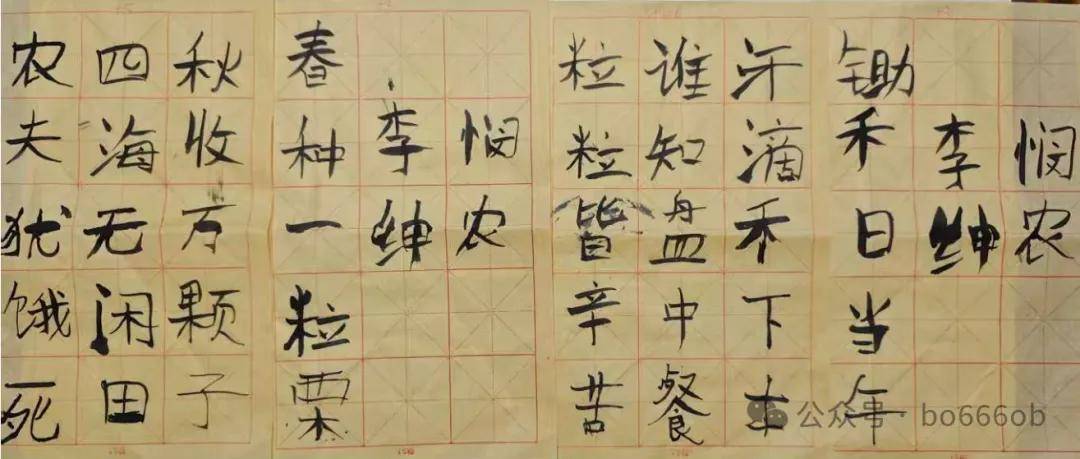 悯农
李绅
锄禾日当年
汗滴禾下土
谁知盘中餐
粒粒皆辛苦
悯农
李绅
春种一粒栗
秋收万颗子
四海无闲田
农夫犹饿死
公众号 · bo666ob